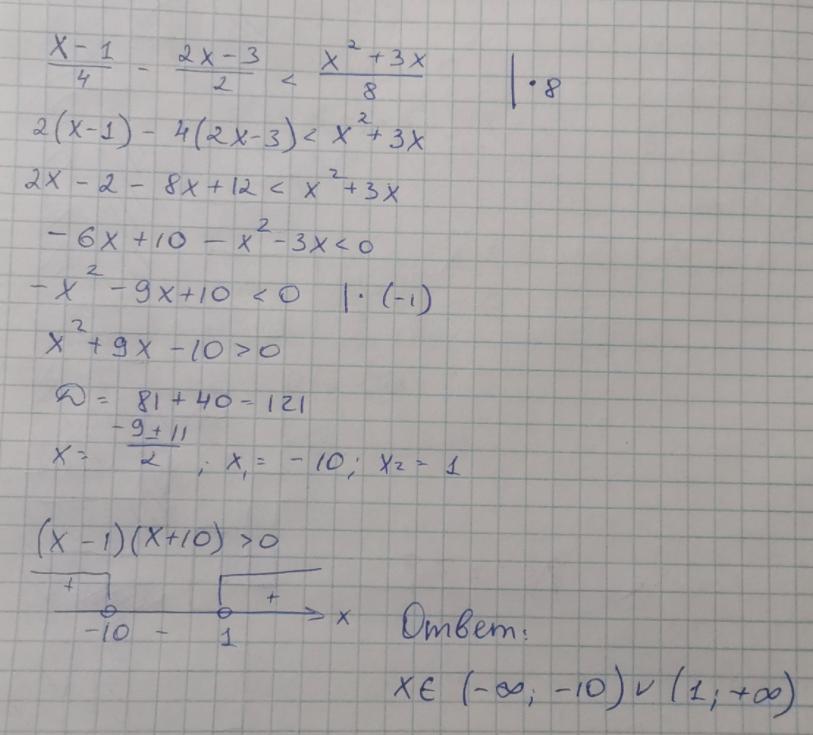 (x-1)/4 - (2x-3)/2 < (x²+3x)/8 |·8
2(x-1) - 4(2x-3) < x²+3x
2x - 2 - 8x + 12 < x²+3x
-6x + 10 - x² - 3x < 0
-x² - 9x + 10 < 0 |·(-1)
x² + 9x - 10 > 0
D = 81 + 40 = 121
x = (-9±11)/2 ; x₁ = -10; x₂ = 1
(x-1)(x+10) > 0
+ +
-10 - 1 x
Ответ:
x ∈ (-∞; -10) ∪ (1; +∞)